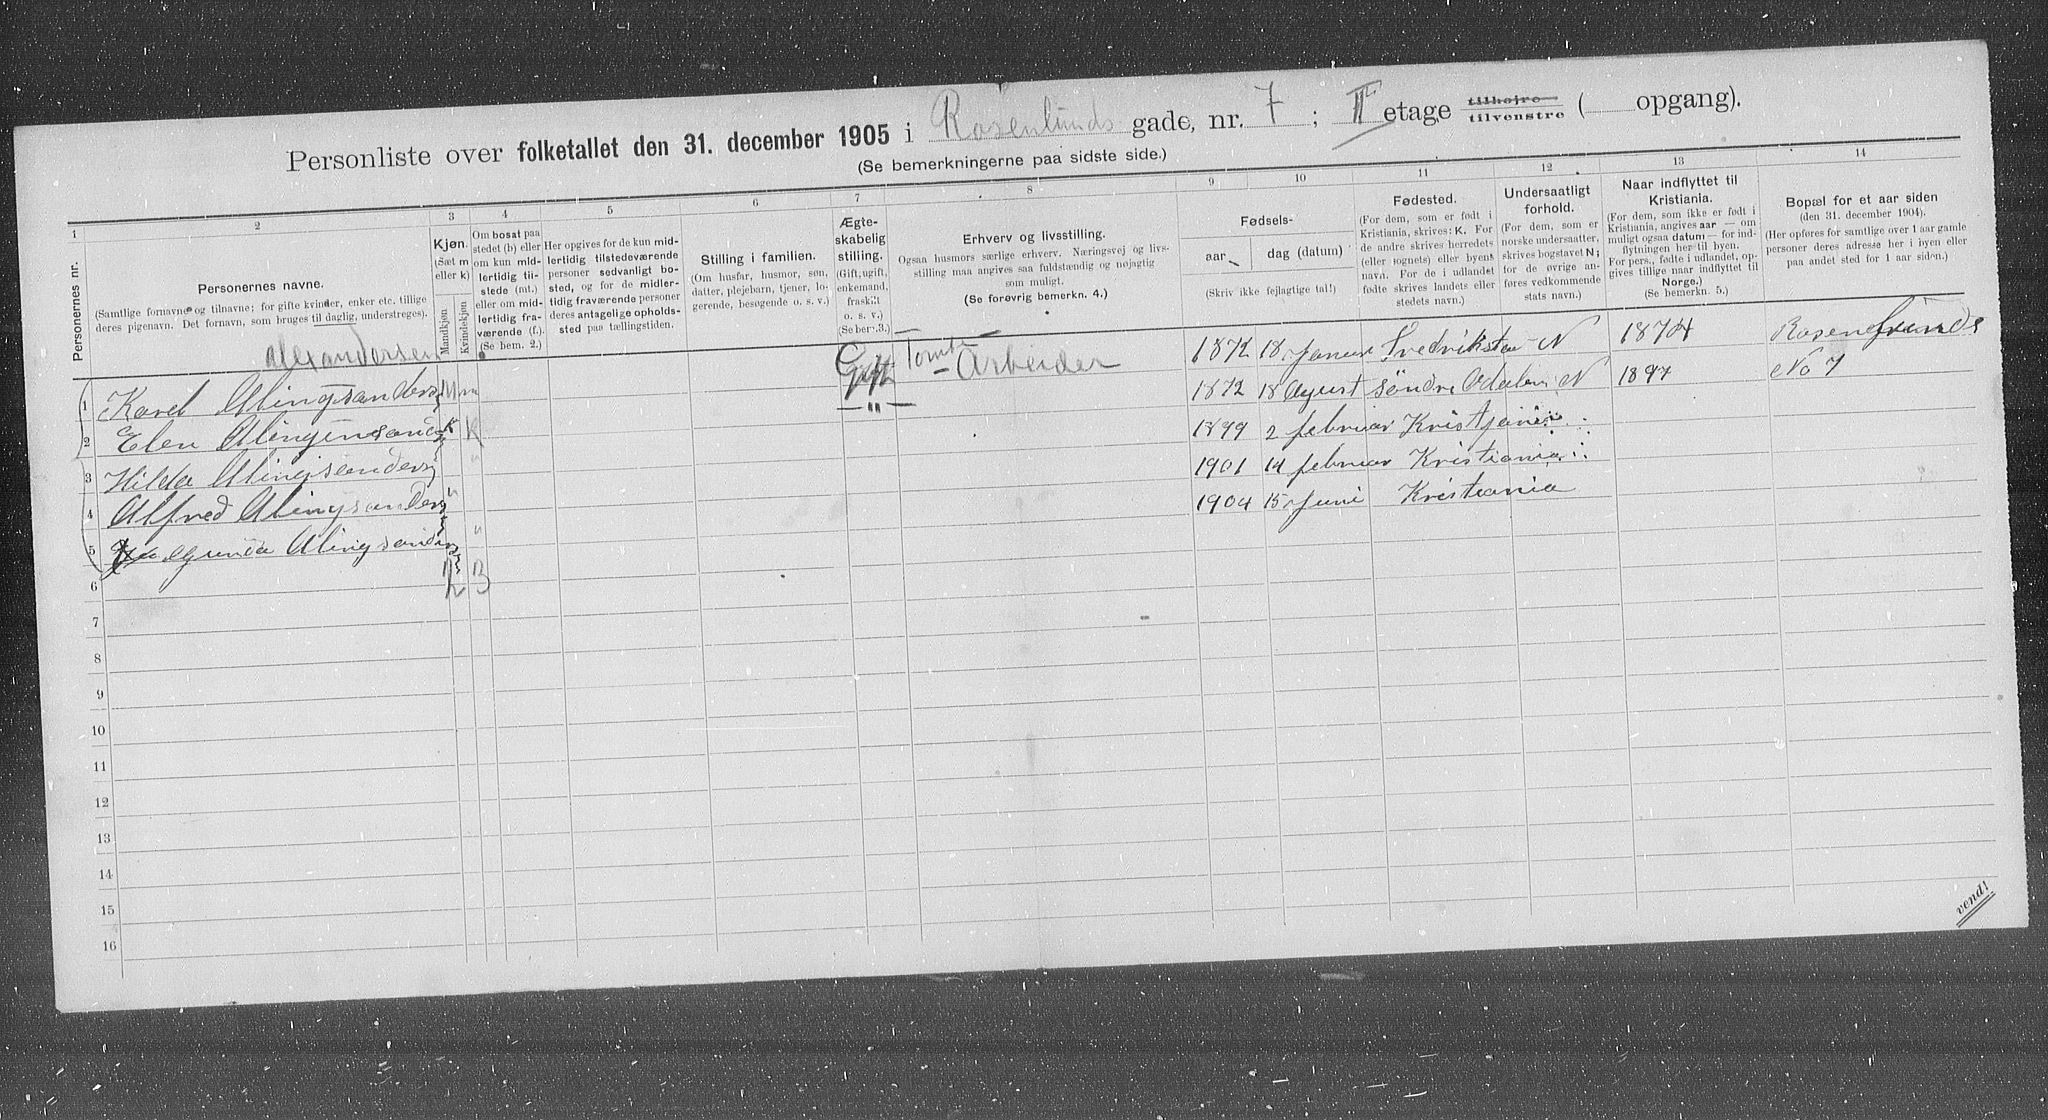 Personliste over folketallet den 31. december 1905 i Rosenlunds gade, nr. 7 ; II etage tilhøjre tilvenstre ( opgang).
(Se bemerkningerne paa sidste side.)
1 2 3 4 5 6 7 8 9 10 11 12 13 14
Personernes nr.
Personernes navne.
(Samtlige fornavne og tilnavne; for gifte kvinder, enker etc. tillige
deres pigenavn. Det fornavn, som bruges til daglig, understreges).
Kjøn.
(Sæt m
eller k)
Mandkjøn
Kvindekjøn
Om bosat paa
stedet (b) eller
om kun mid-
lertidig til-
stede (mt.)
eller om mid-
lertidig fra-
værende (f.)
(Se bem. 2.)
Her opgives for de kun mid-
lertidig tilstedeværende
personer sedvanligt bo-
sted, og for de midler-
tidig fraværende personer
deres antagelige opholds-
sted paa tællingstiden.
Stilling i familien.
(Om husfar, husmor, søn,
datter, plejebarn, tjener, lo-
gerende, besøgende o. s. v.)
Ægte-
skabelig
stilling.
(Gift, ugift,
enkemand,
fraskilt
o. s. v.)
(Se bem. 3.)
Erhverv og livsstilling.
Ogsaa husmors særlige erhverv. Næringsvej og livs-
stilling maa angives saa fuldstændig og nøjagtig
som muligt.
(Se forøvrig bemerkn. 4.)
Fødsels-
aar
dag (datum)
(Skriv ikke fejlagtige tal!)
Fødested.
(For dem, som er født i
Kristiania, skrives: K. For
de andre skrives herredets
(eller sognets) eller byens
navn. For de i udlandet
fødte skrives landets eller
stedets navn.)
Undersaatligt
forhold.
(For dem, som er
norske undersaatter,
skrives bogstavet N;
for de øvrige an-
føres vedkommende
stats navn.)
Naar indflyttet til
Kristiania.
(For dem, som ikke er født i
Kristiania, angives aar — om
muligt ogsaa datum — for ind-
flytningen her til byen.
For pers., fødte i udlandet, op-
gives tillige naar indflyttet til
Norge.)
(Se bemerkn. 5.)
Bopæl for et aar siden
(den 31. december 1904).
(Her opføres for samtlige over 1 aar gamle
personer deres adresse her i byen eller
paa andet sted for 1 aar siden.)
Alexandersen
1 Karel Alingsanders m Gift Tomte Arbeider 1872 18 Januar Fredrikstad N 1874 Rosenlunds
2 Elen K " 1872 18 August Søndre Odalen N 1897 No 7
3 Hilda Alingsanders " 1899 2 februar Kristjania
4 Alfred Alingsanders " 1901 14 februar Kristiania
5 Gunda Alingsanders " 1904 15 Juni Kristiania
6 2 3
7
8
9
10
11
12
13
14
15
16
vend!